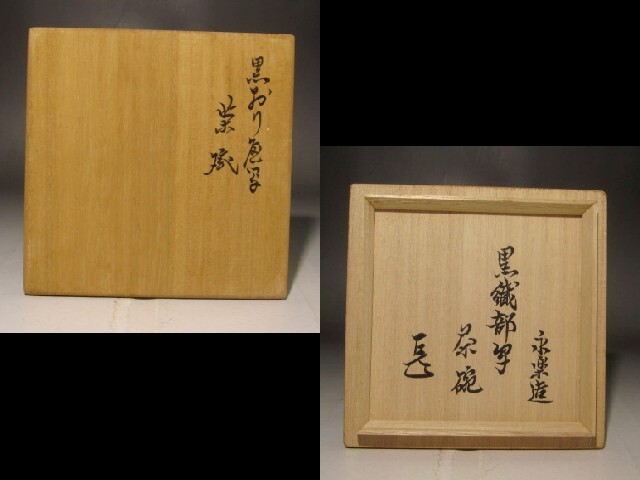 黒おり遍写
茶碗
永楽造
黒織部写
茶碗